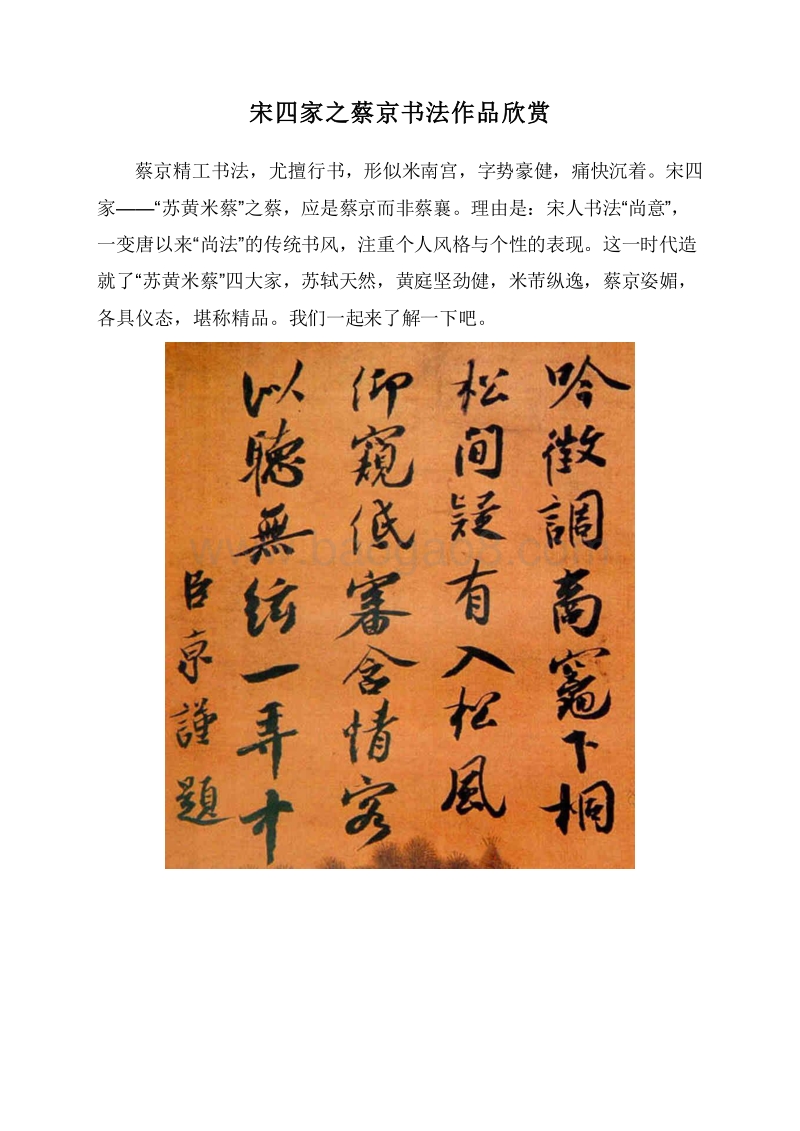 宋四家之蔡京书法作品欣赏
蔡京精工书法，尤擅行书，形似米南宫，字势豪健，痛快沉着。宋四
家——“苏黄米蔡”之蔡，应是蔡京而非蔡襄。理由是：宋人书法“尚意”，
一变唐以来“尚法”的传统书风，注重个人风格与个性的表现。这一时代造
就了“苏黄米蔡”四大家，苏轼天然，黄庭坚劲健，米芾纵逸，蔡京姿媚，
各具仪态，堪称精品。我们一起来了解一下吧。
吟徵調商竈下桐
松間疑有入松風
仰窺低審含情客
以聽無絃一弄中
臣京謹題